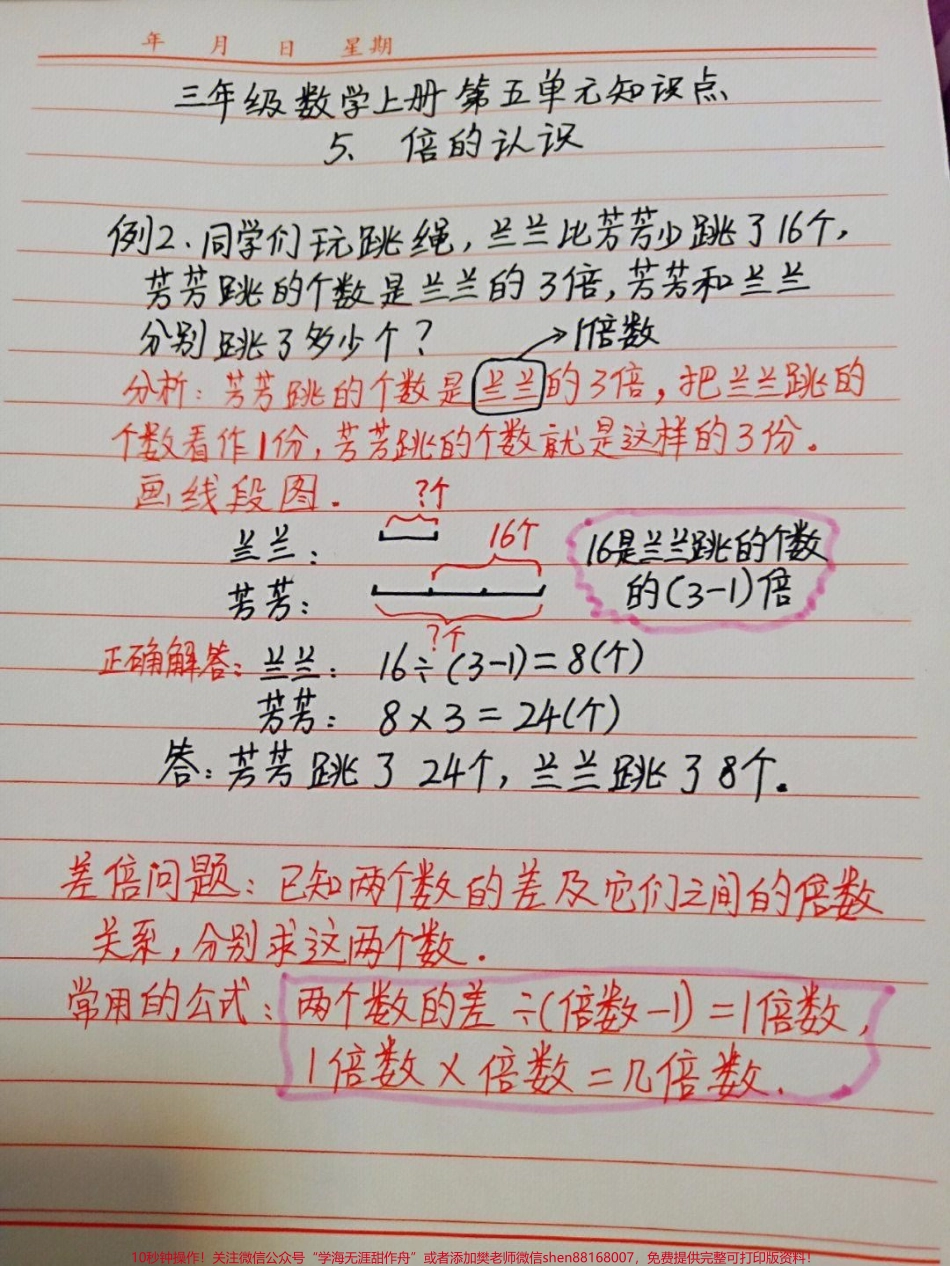 年 月 日 星期
三年级数学上册第五单元知识点
5、倍的认识
例2、同学们玩跳绳,兰兰比芳芳少跳了16个,
芳芳跳的个数是兰兰的3倍,芳芳和兰兰
分别跳了多少个?
1倍数
分析:芳芳跳的个数是兰兰的3倍,把兰兰跳的
个数看作1份,芳芳跳的个数就是这样的3份。
画线段图.
?个
兰兰:
16个
芳芳:
?个
16是兰兰跳的个数
的(3-1)倍
正确解答:兰兰:16÷(3-1)=8(个)
芳芳:8×3=24(个)
答:芳芳跳了24个,兰兰跳了8个。
差倍问题:已知两个数的差及它们之间的倍数
关系,分别求这两个数.
常用的公式:两个数的差÷(倍数-1)=1倍数,
1倍数×倍数=几倍数.
10秒钟操作!关注微信公众号“学海无涯甜作舟”或者添加樊老师微信shen88168007,免费提供完整可打印版资料!